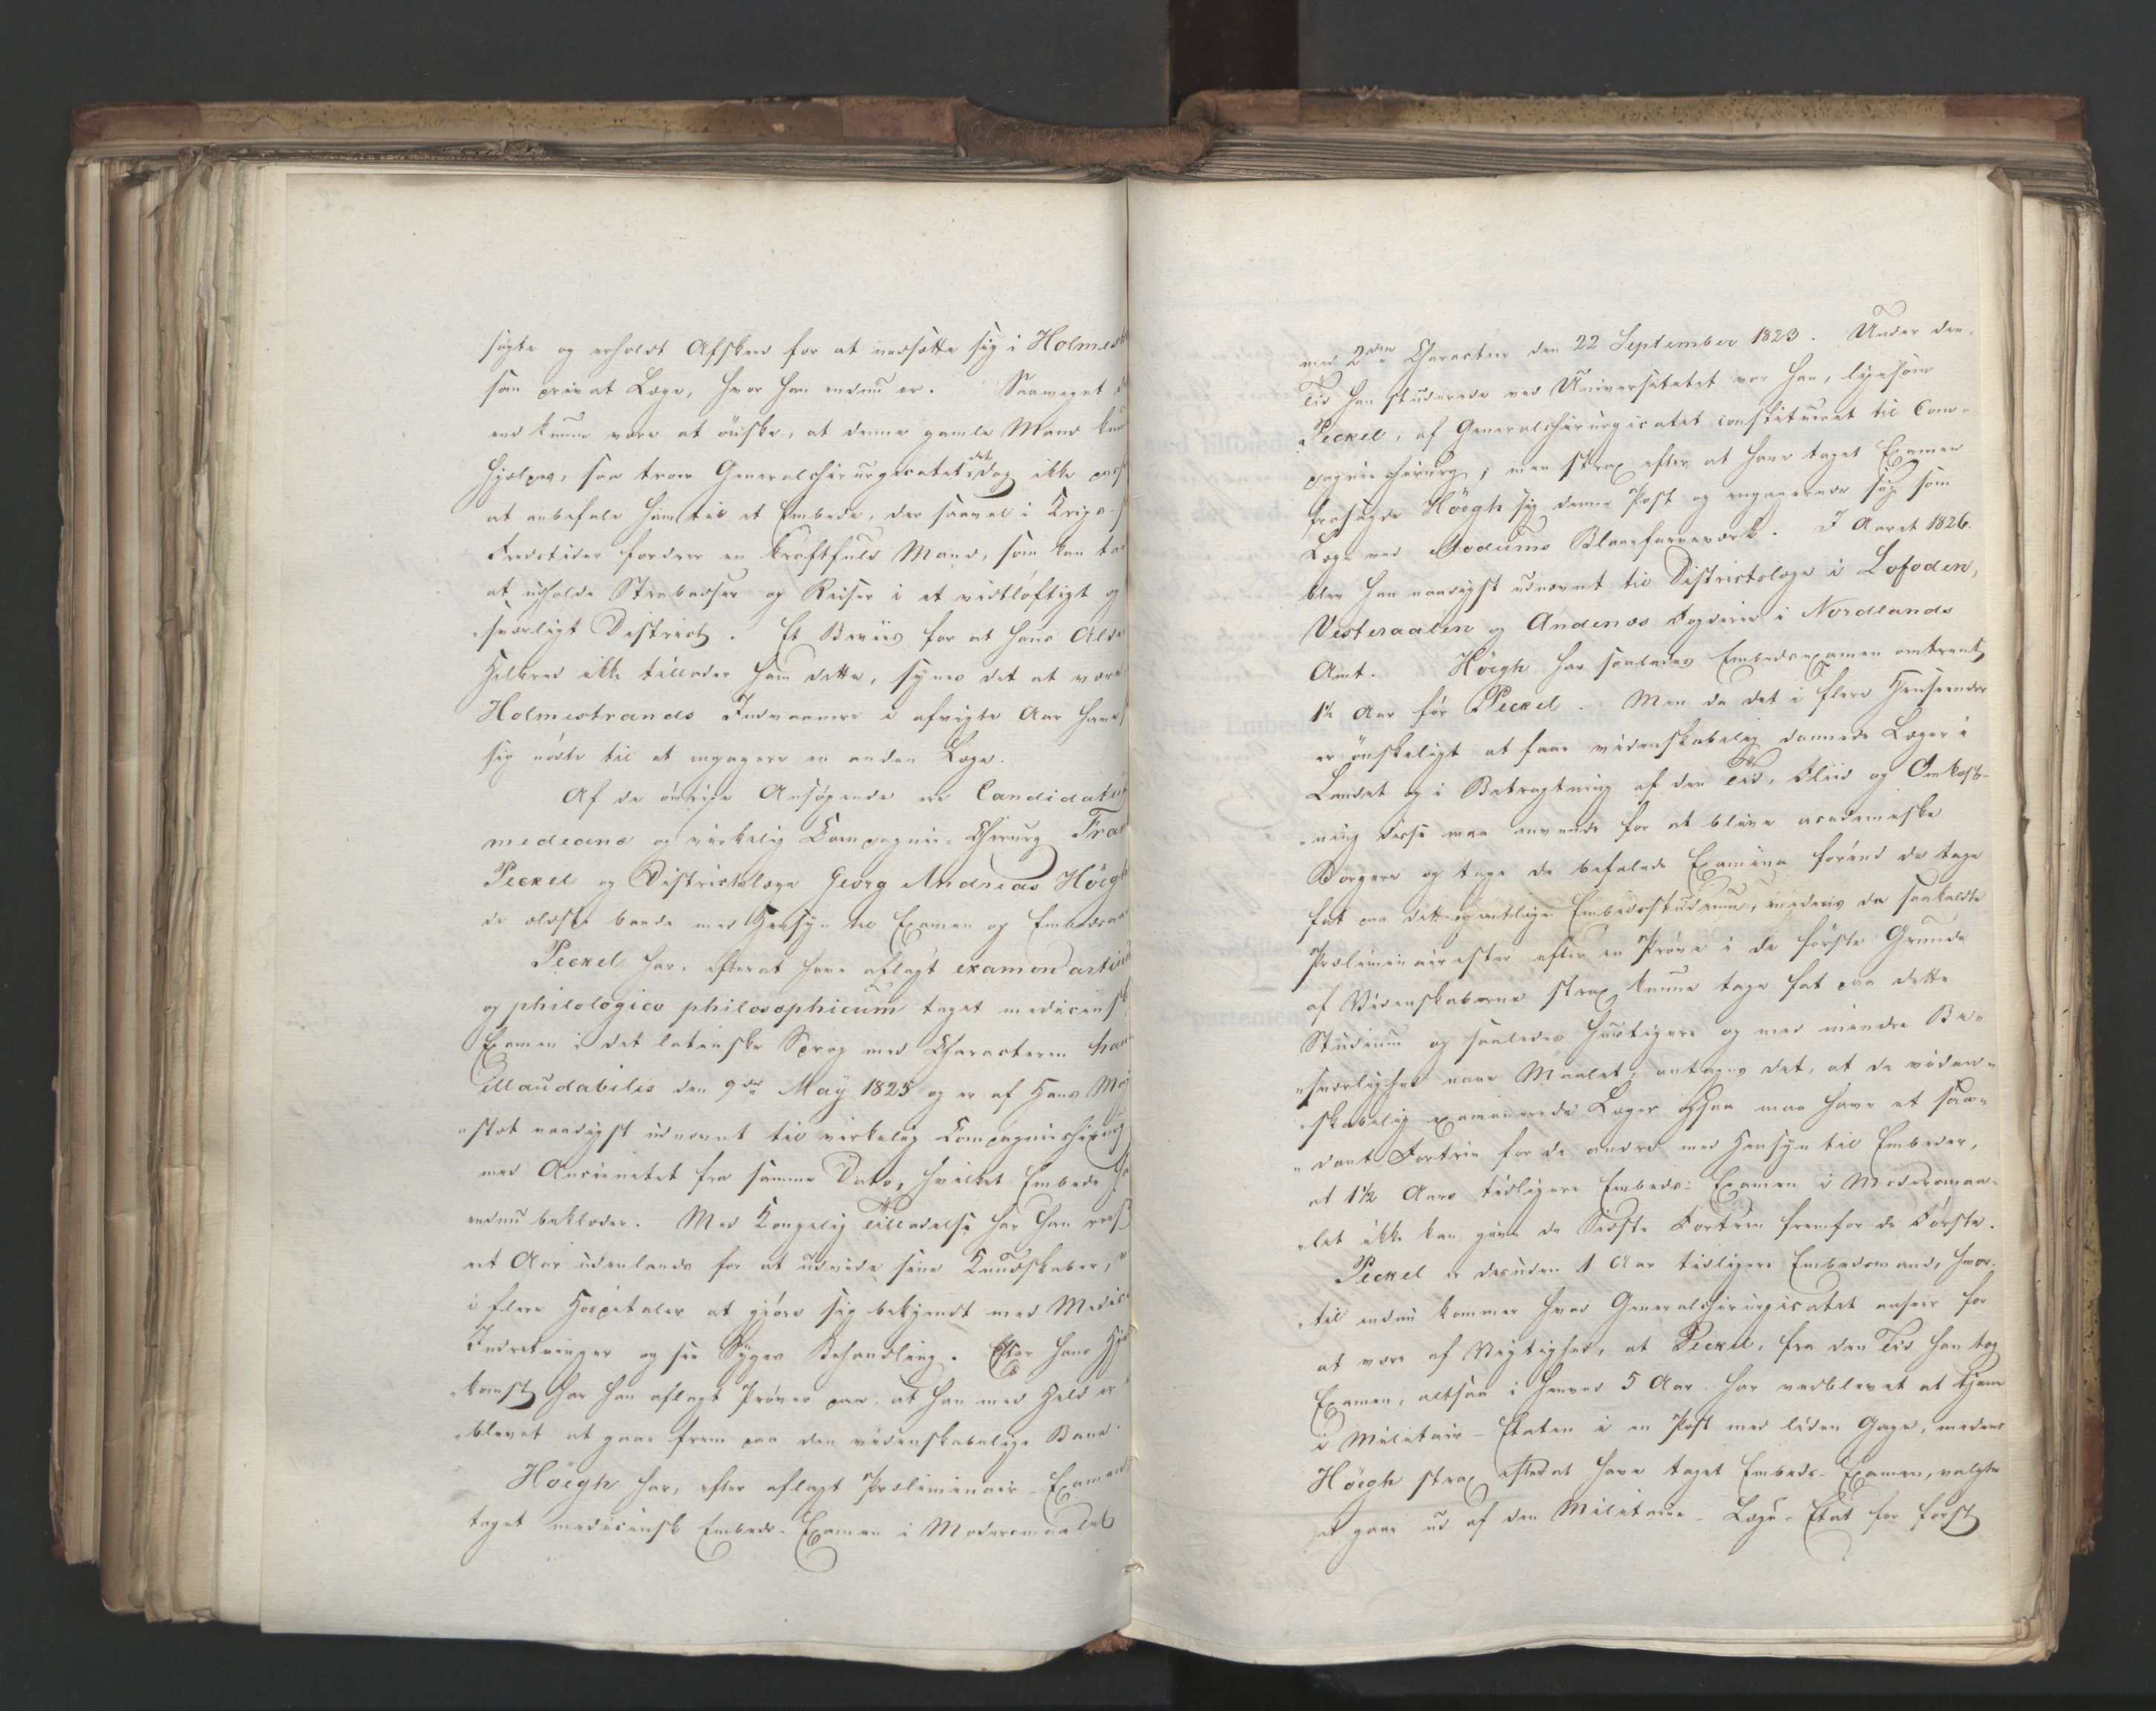 søgte og erholdt Afskeed for at nedsætte sig i Holmest
som privat Læge, hvor han endnu er. Saameget d
end kunne være at ønske, at denne gamle Mand kun
hjelpes, saa troer Generalchirurgicatet det dog ikke pass
at anbefale ham til et Embede, der saavel i Krigs-
Fredstider fordrer en kraftfuld Mand, som kan ta
at udholde Strabadser og Reiser i et vidtløftigt og
sværligt District. Et Beviis for at hans Alde
Helbred ikke tillader ham dette, synes det at være
Holmestrands Indvaanere i afvigte Aar have
sig nødte til at engagere en anden Læge.
Af de øvrige Ansøgende ere Candidatus
medicinæ og virkelig Compagnie-Chirurg Fra
Peckel og Districtslæge Georg Andreas Höegh
de ældste baade med Hensyn til Examen og Embedsa
Peckel har, efterat have aflagt examen artiu
og philologico philosophicum taget medicinsk
Examen i det latinske Sprog med Characteren hau
illaudabilis den 9de May 1825 og er af Hans Maj
stæt naadigst udnævnt til virkelig Compagniechirurg
med Ancienitet fra samme Dato, hvilket Embede ha
endnu beklæder. Med Kongelig Tilladelse har han reis
eet Aar udenlands for at udvide sine Kundskaber,
i flere Hospitaler at gjøre sig bekjendt med Medic
Indretninger og see Syges Behandling. Efter hans Hje
komst har han aflagt Prøver paa, at han med Held er
blevet at gaae frem paa den videnskabelige Bane.
Höegh har, efter aflagt Præliminair-Examen
taget medicinsk Embeds-Examen i Modersmaalet
med 2den Character den 22 September 1823. Under den
Tid han studerede ved Universitetet var han, ligesom
Peckel, af Generalchirurgicatet constitueret til Com-
pagniechirurg, men strax efter at have taget Examen
frasagde Höegh sig denne Post og engagerede sig som
Læge ved Modums Blaafarveværk. I Aaret 1826.
blev han naadigst udnævnt til Districtslæge i Lofoden,
Vesteraalen og Andenæs Fogderie i Nordlands
Amt. Höegh har saaledes Embedsexamen omtrent
1½ Aar før Peckel. Men da det i flere Henseender
er ønskeligt at faae videnskabelig dannede Læger i
Landet og i Betragtning af den Tid, Fliid og Omkost-
ning disse maa anvende for at blive academiske
Borgere og tage de befalede Examina førend de tage
fat paa det egentlige Embedsstudium, medens de saakaldte
Præliminairister efter en Prøve i de første Grunde
af Videnskaberne strax kunne tage fat paa dette
Studium og saaledes hurtigere og med mindre Be-
sværlighed naae Maalet, antages det, at de viden-
skabelig examinerede Læger ogsaa maa have et saa-
dant Fortrin for de andre med Hensyn til Embeder,
at 1½ Aars tidligere Embeds-Examen i Modersmaa-
let ikke kan give de Sidste Fortrin fremfor de Første.
Peckel er desuden 1 Aar tidligere Embedsmand, hvor-
til endnu kommer hvad Generalchirurgicatet anseer for
at være af Vigtighed, at Peckel, fra den Tid han tog
Examen, altsaa i henved 5 Aar har vedblevet at tjene
i Militair-Etaten i en Post med liden Gage, medens
Höegh strax efterat have taget Embeds-Examen, valgte
at gaae ud af den Militaire-Læge-Etat for først